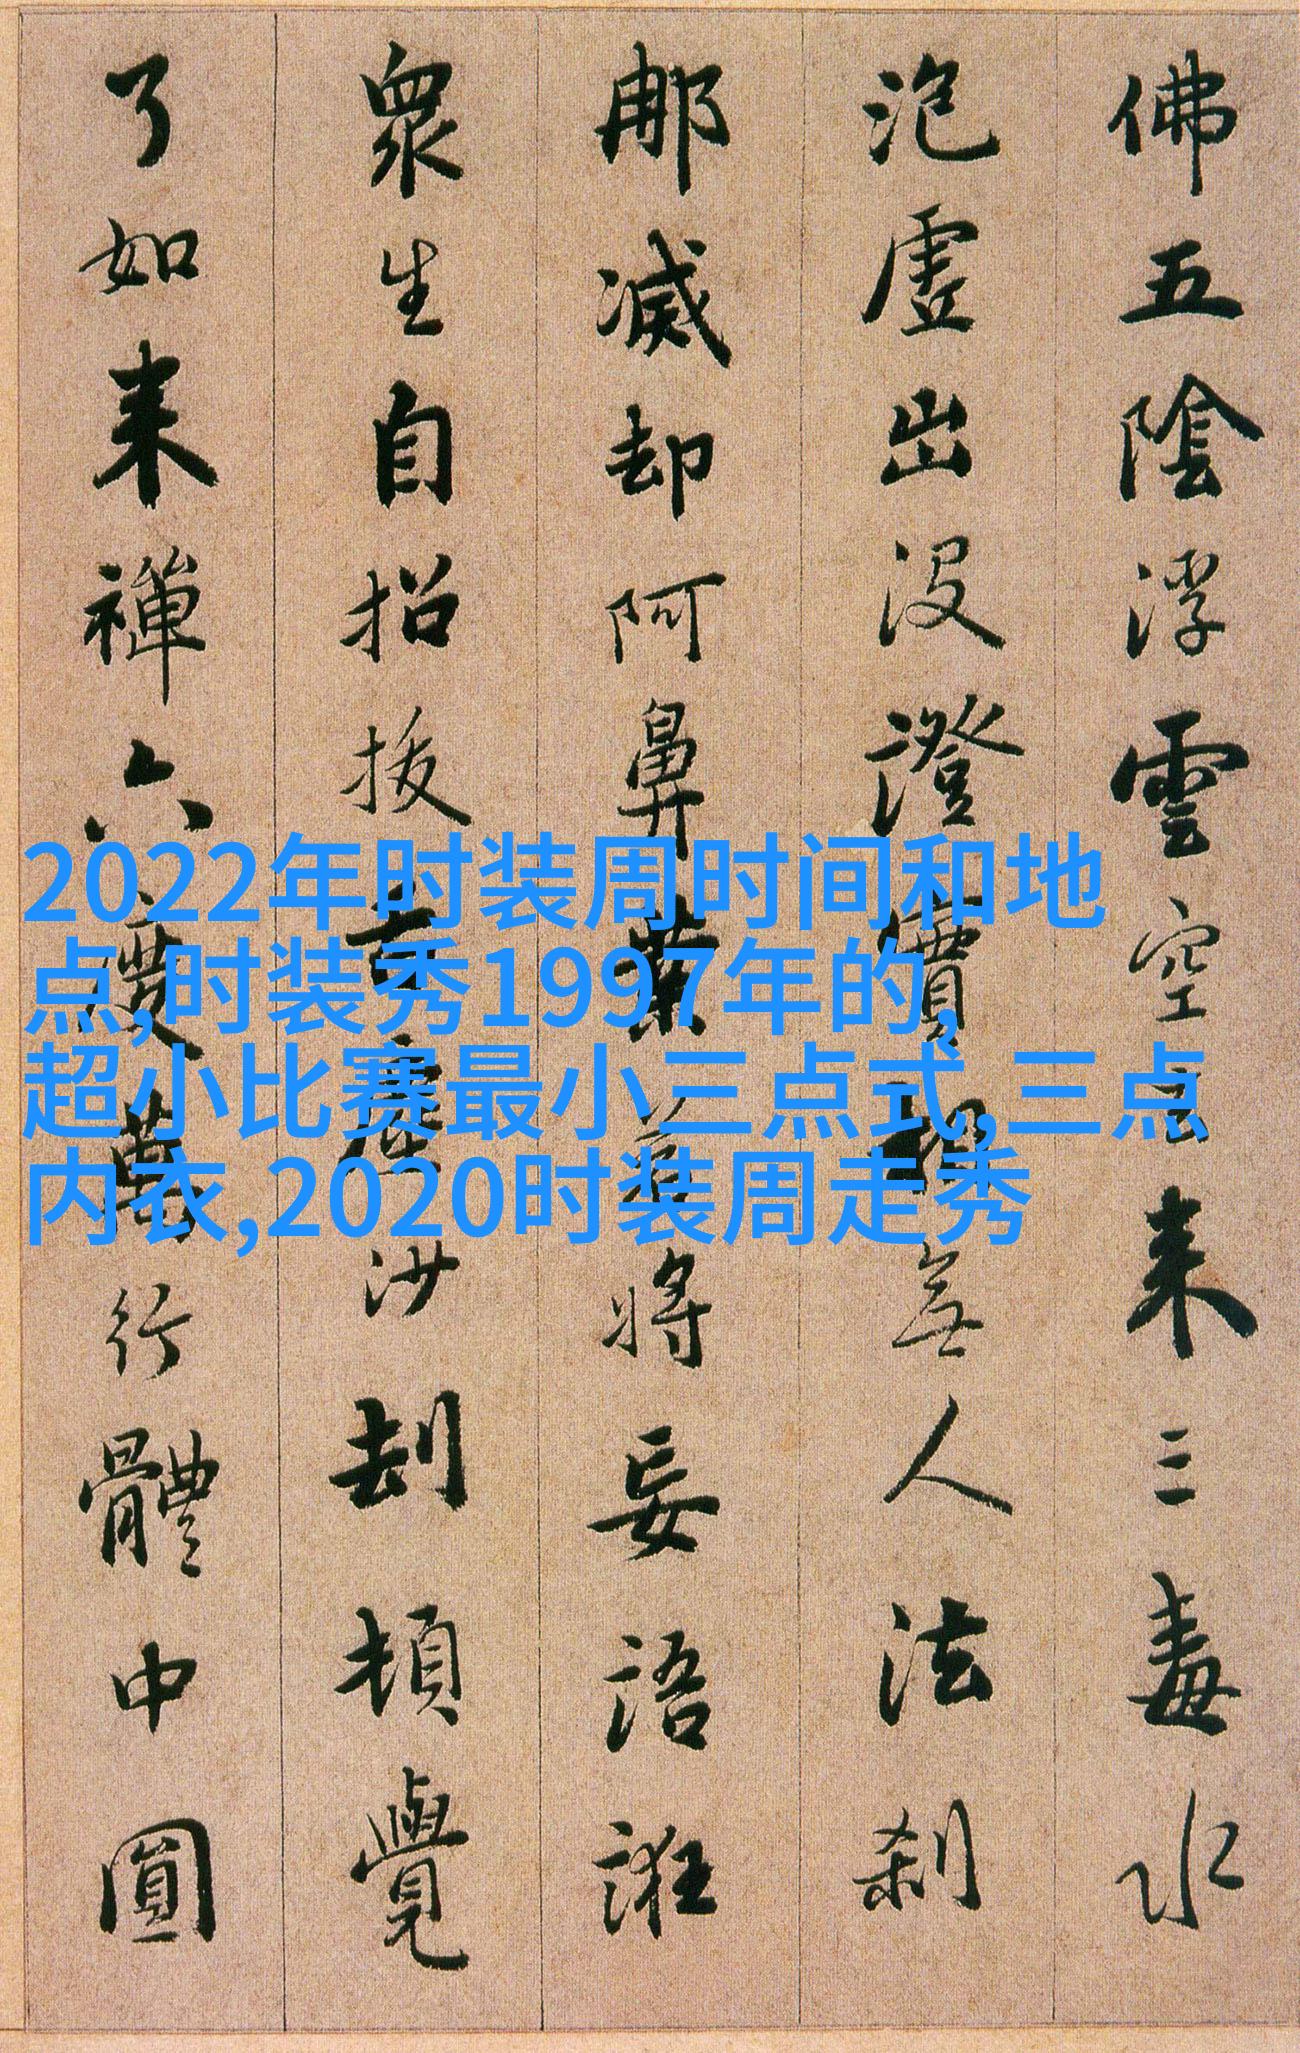 佛五陰浮雲空去来三毒水
泡虛出没澄實相無人法刹
那滅却阿鼻業若將妄語誑
衆生自招拔舌塵沙劫頓覺
了如来禪六度萬行體中圓
2022年时装周时间和地
点,时装秀1997年的,
超小比赛最小三点式,三点
内衣,2020时装周走秀